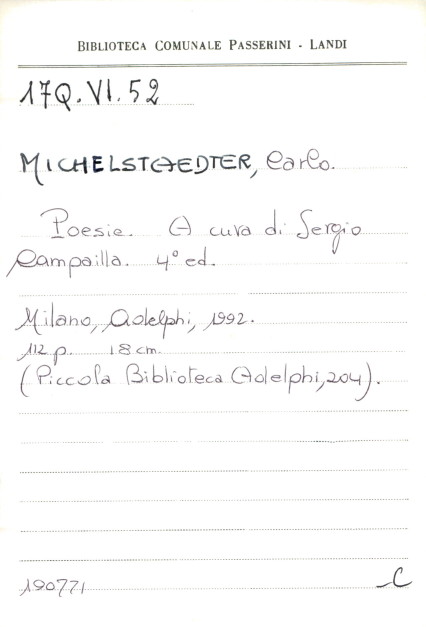 BIBLIOTECA COMUNALE PASSERINI - LANDI
17Q.VI.52
MICHELSTAEDTER, Carlo.
Poesie. A cura di Sergio
Campailla. 4° ed.
Milano, Adelphi, 1992.
112 p. 18 cm.
(Piccola Biblioteca Adelphi, 204).
190771 C